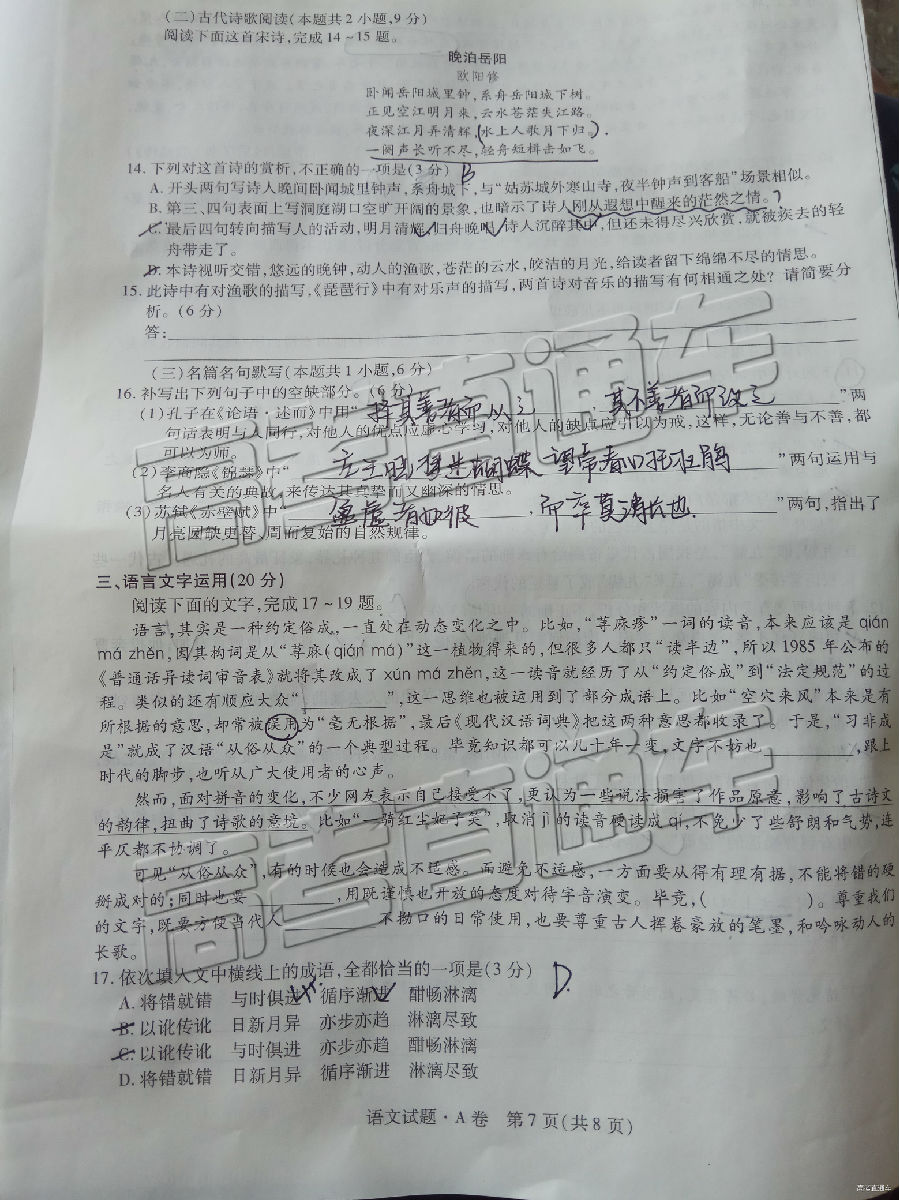 (二)古代诗歌阅读(本题共2小题,9分)
阅读下面这首宋诗,完成14~15题。
晚泊岳阳
欧阳修
卧闻岳阳城里钟,系舟岳阳城下树。
正见空江明月来,云水苍茫失江路。
夜深江月弄清辉,水上人歌月下归。
一阕声长听不尽,轻舟短楫击如飞。
14. 下列对这首诗的赏析,不正确的一项是(3分) B
A. 开头两句写诗人晚间卧闻城里钟声,系舟城下,与“姑苏城外寒山寺,夜半钟声到客船”场景相似。
B. 第三、四句表面上写洞庭湖口空旷开阔的景象,也暗示了诗人刚从遐想中醒来的茫然之情。?
C. 最后四句转向描写人的活动,明月清辉,归舟晚唱,诗人沉醉其中,但还未得尽兴欣赏,就被疾去的轻
舟带走了。
D. 本诗视听交错,悠远的晚钟,动人的渔歌,苍茫的云水,皎洁的月光,给读者留下绵绵不尽的情思。
15. 此诗中有对渔歌的描写,《琵琶行》中有对乐声的描写,两首诗对音乐的描写有何相通之处?请简要分
析。(6分)
答:
(三)名篇名句默写(本题共1小题,6分)
16. 补写出下列句子中的空缺部分。(6分)
(1)孔子在《论语·述而》中用“择其善者而从之 其不善者而改之”两
句话表明与人同行,对他人的优点应虚心学习,对他人的缺点应引以为戒,这样,无论善与不善,都
可以为师。
(2)李商隐《锦瑟》中“庄生晓梦迷蝴蝶 望帝春心托杜鹃”两句运用与
名人有关的典故,来传达其真挚而又幽深的情思。
(3)苏轼《赤壁赋》中“盈虚者如彼,而卒莫消长也”两句,指出了
月亮圆缺更替、周而复始的自然规律。
三、语言文字运用(20分)
阅读下面的文字,完成17~19题。
语言,其实是一种约定俗成,一直处在动态变化之中。比如,“荨麻疹”一词的读音,本来应该是qián
má zhěn,因其构词是从“荨麻(qián má)”这一植物得来的,但很多人都只“读半边”,所以1985年公布的
《普通话异读词审音表》就将其改成了xún má zhěn,这一读音就经历了从“约定俗成”到“法定规范”的过
程。类似的还有顺应大众“________”,这一思维也被运用到了部分成语上。比如“空穴来风”本来是有
所根据的意思,却常被误用为“毫无根据”,最后《现代汉语词典》把这两种意思都收录了。于是,“习非成
是”就成了汉语“从俗从众”的一个典型过程。毕竟知识都可以几十年一变,文字不妨也________,跟上
时代的脚步,也听从广大使用者的心声。
然而,面对拼音的变化,不少网友表示自己接受不了,更认为一些说法损害了作品原意,影响了古诗文
的韵律,扭曲了诗歌的意境。比如“一骑红尘妃子笑”,取消jì的读音硬读成qí,不免少了些舒朗和气势,连
平仄都不协调了。
可见“从俗从众”,有的时候也会造成不适感。而避免不适感,一方面要从得有理有据,不能将错的硬
掰成对的;同时也要________,用既谨慎也开放的态度对待字音演变。毕竟,( )。尊重我们
的文字,既要方便当代人________不拗口的日常使用,也要尊重古人挥卷豪放的笔墨,和吟咏动人的
长歌。
17. 依次填入文中横线上的成语,全都恰当的一项是(3分) D.
A. 将错就错 与时俱进 循序渐进 酣畅淋漓
B. 以讹传讹 日新月异 亦步亦趋 淋漓尽致
C. 以讹传讹 与时俱进 亦步亦趋 酣畅淋漓
D. 将错就错 日新月异 循序渐进 淋漓尽致
语文试题·A卷 第7页(共8页)
高考直通车
高考直通车
高考直通车